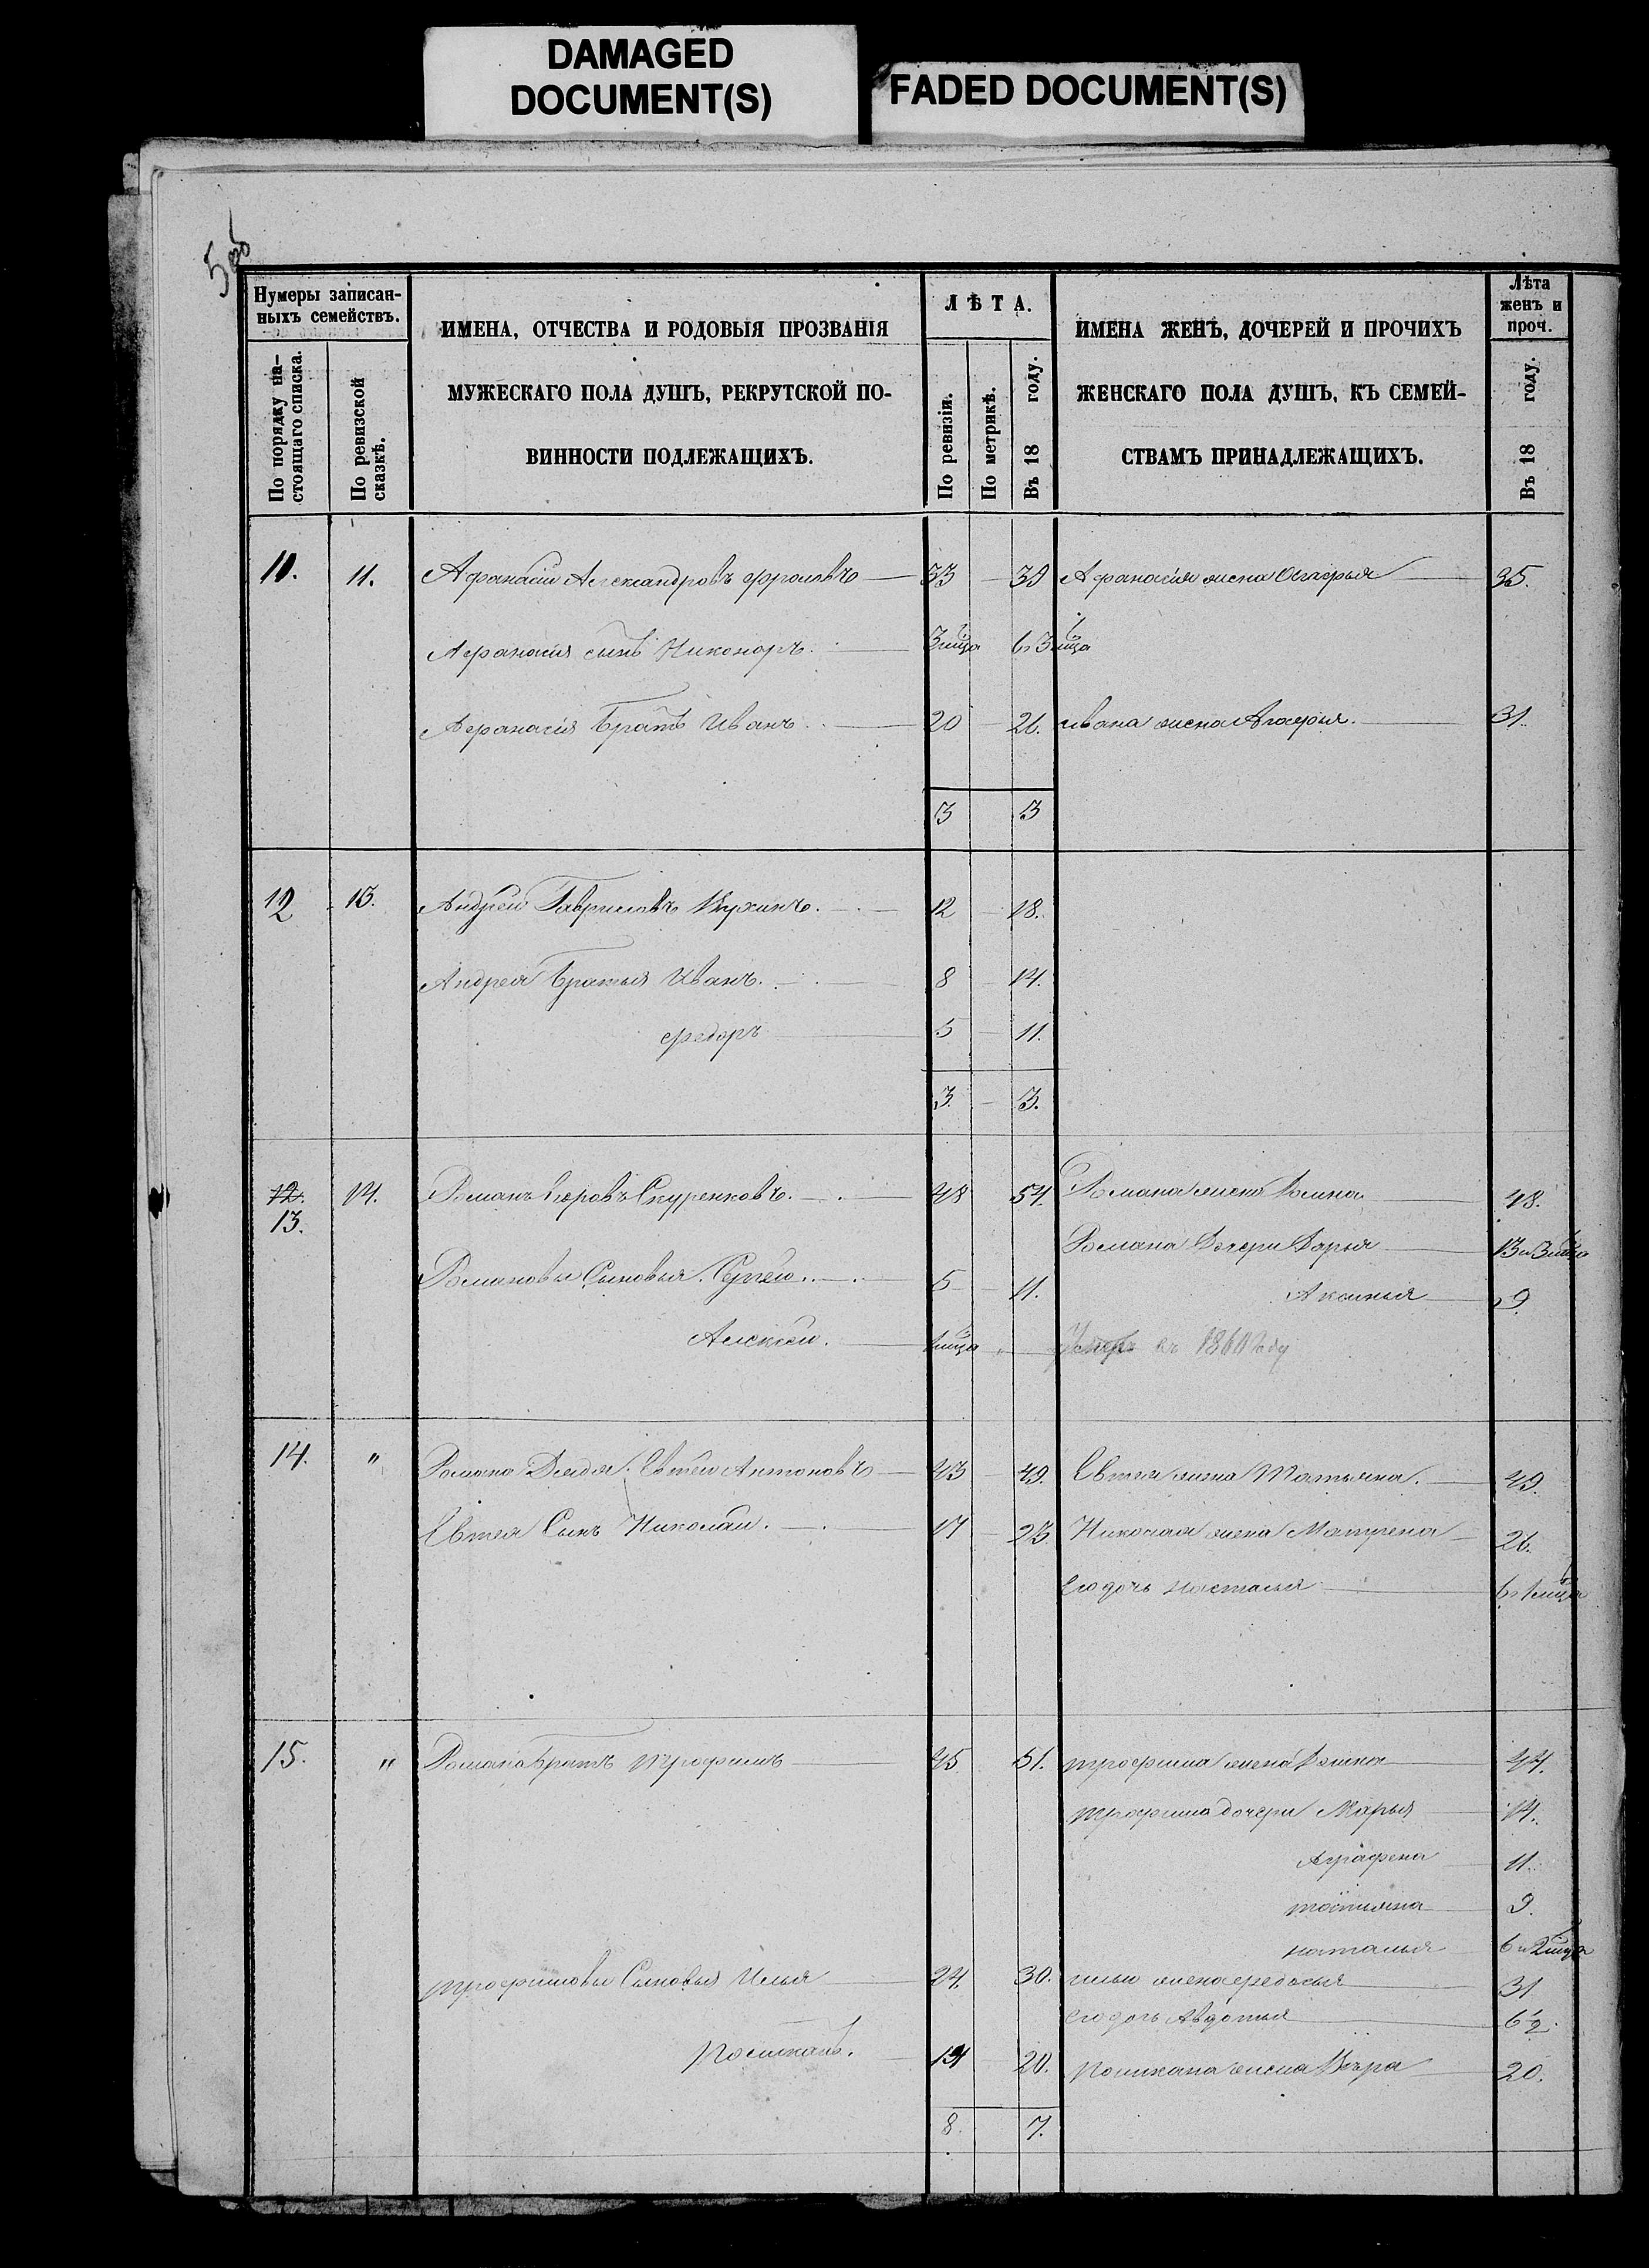 DAMAGED
DOCUMENT(S)
FADED DOCUMENT(S)
5 об
Нумеры записан-
ныхъ семействъ.
По порядку на-
стоящаго списка.
По ревизской
сказкѣ.
ИМЕНА, ОТЧЕСТВА И РОДОВЫЯ ПРОЗВАНІЯ
МУЖЕСКАГО ПОЛА ДУШЪ, РЕКРУТСКОЙ ПО-
ВИННОСТИ ПОДЛЕЖАЩИХЪ.
ЛѢТА.
По ревизіи.
По метрикѣ.
Въ 18 году.
ИМЕНА ЖЕНЪ, ДОЧЕРЕЙ И ПРОЧИХЪ
ЖЕНСКАГО ПОЛА ДУШЪ, КЪ СЕМЕЙ-
СТВАМЪ ПРИНАДЛЕЖАЩИХЪ.
Лѣта
женъ и
проч.
Въ 18 году.
11. 11. Афанасій Александровъ Фроловъ 33 39 Афанасія жена 35.
Афанасія сынъ Никоноръ. 3 мца 6 3 мца
Афанасія Братъ Иванъ 20 26. ивана жена Агафья. 31.
3 3
12 13. Андрей Гавриловъ 12 18.
Андрея Братья Иванъ. 8 14.
федоръ 5 11.
3. 3.
12. 14. Романъ Скуренковъ. 48 54. Романа жена 48.
13.
Романа Дочери Дарья 13 и 3 мца
Романовы Сыновья. Сергей. 5 11.
Аксинья 9
Алексей. 1 мца " Умеръ въ 1860 году
14. " Романа Дядя. Евтей Антоновъ 43 49. Евтея жена Татьяна. 49.
Евтея Сынъ Николай. 17 23. Николая жена Матрена 26.
Его дочь Насталья 6 1 мца
15. " Романа братъ трофимъ 45 51. трофима жена 44.
трофима дочери Марья 14.
Аграфена 11.
татьяна 9.
наталья 6 и 2 мца
трофимовы Сыновья Илья 24. 30. ильи жена федосья 31
Его дочь Авдотья 6½.
14 20. жена Вера 20.
8. 7.